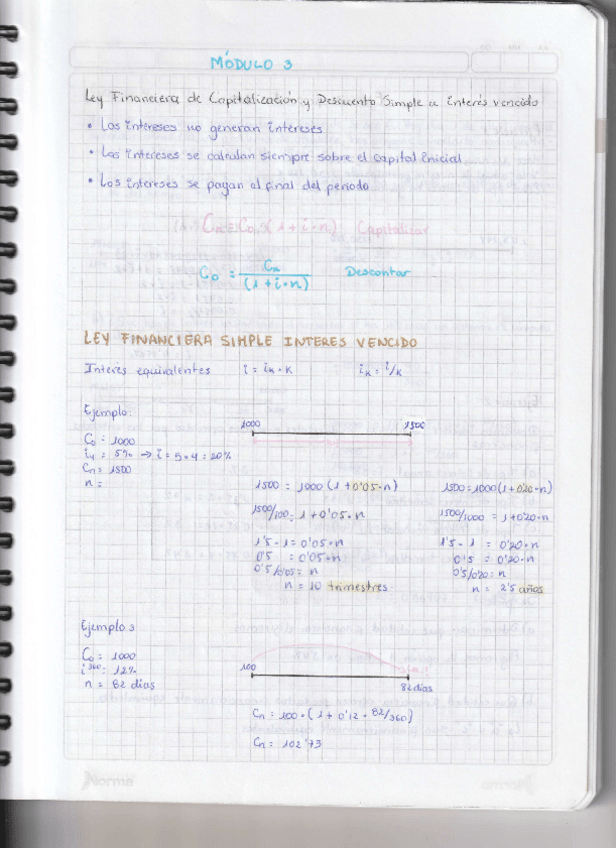 MÓDULO 3
Ley Financiera de Capitalización y Descuento Simple a interés vencido
• Los intereses no generan intereses
• Los intereses se calculan siempre sobre el capital inicial
• Los intereses se pagan al final del periodo
Cn = C0 · (1 + i · n) Capitalizar
C0 = Cn / (1 + i · n) Descontar
LEY FINANCIERA SIMPLE INTERES VENCIDO
Interes equivalentes i = ik · k ik = i/k
Ejemplo:
1000 1500
C0 = 1000
i4 = 5% → i = 5 · 4 = 20%
Cn = 1500
n =
1500 = 1000 (1 + 0'05 · n) 1500 = 1000 (1 + 0'20 · n)
1500/100 = 1 + 0'05 · n 1500/1000 = 1 + 0'20 · n
1'5 - 1 = 0'05 · n 1'5 - 1 = 0'20 · n
0'5 = 0'05 · n 0'5 = 0'20 · n
0'5/0'05 = n 0'5/0'20 = n
n = 10 trimestres n = 2'5 años
Ejemplo 3
C0 = 1000
i360 = 12%
n = 82 días
100 82 días
Cn = 100 · (1 + 0'12 · 82/360)
Cn = 102'73
Norma